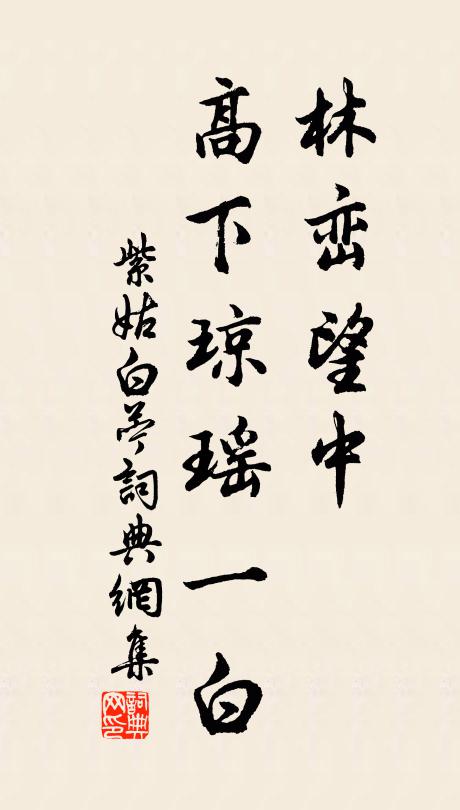 林峦望中
髙下琼瑶一白
紫姑白苧詞典網集
詞典网印